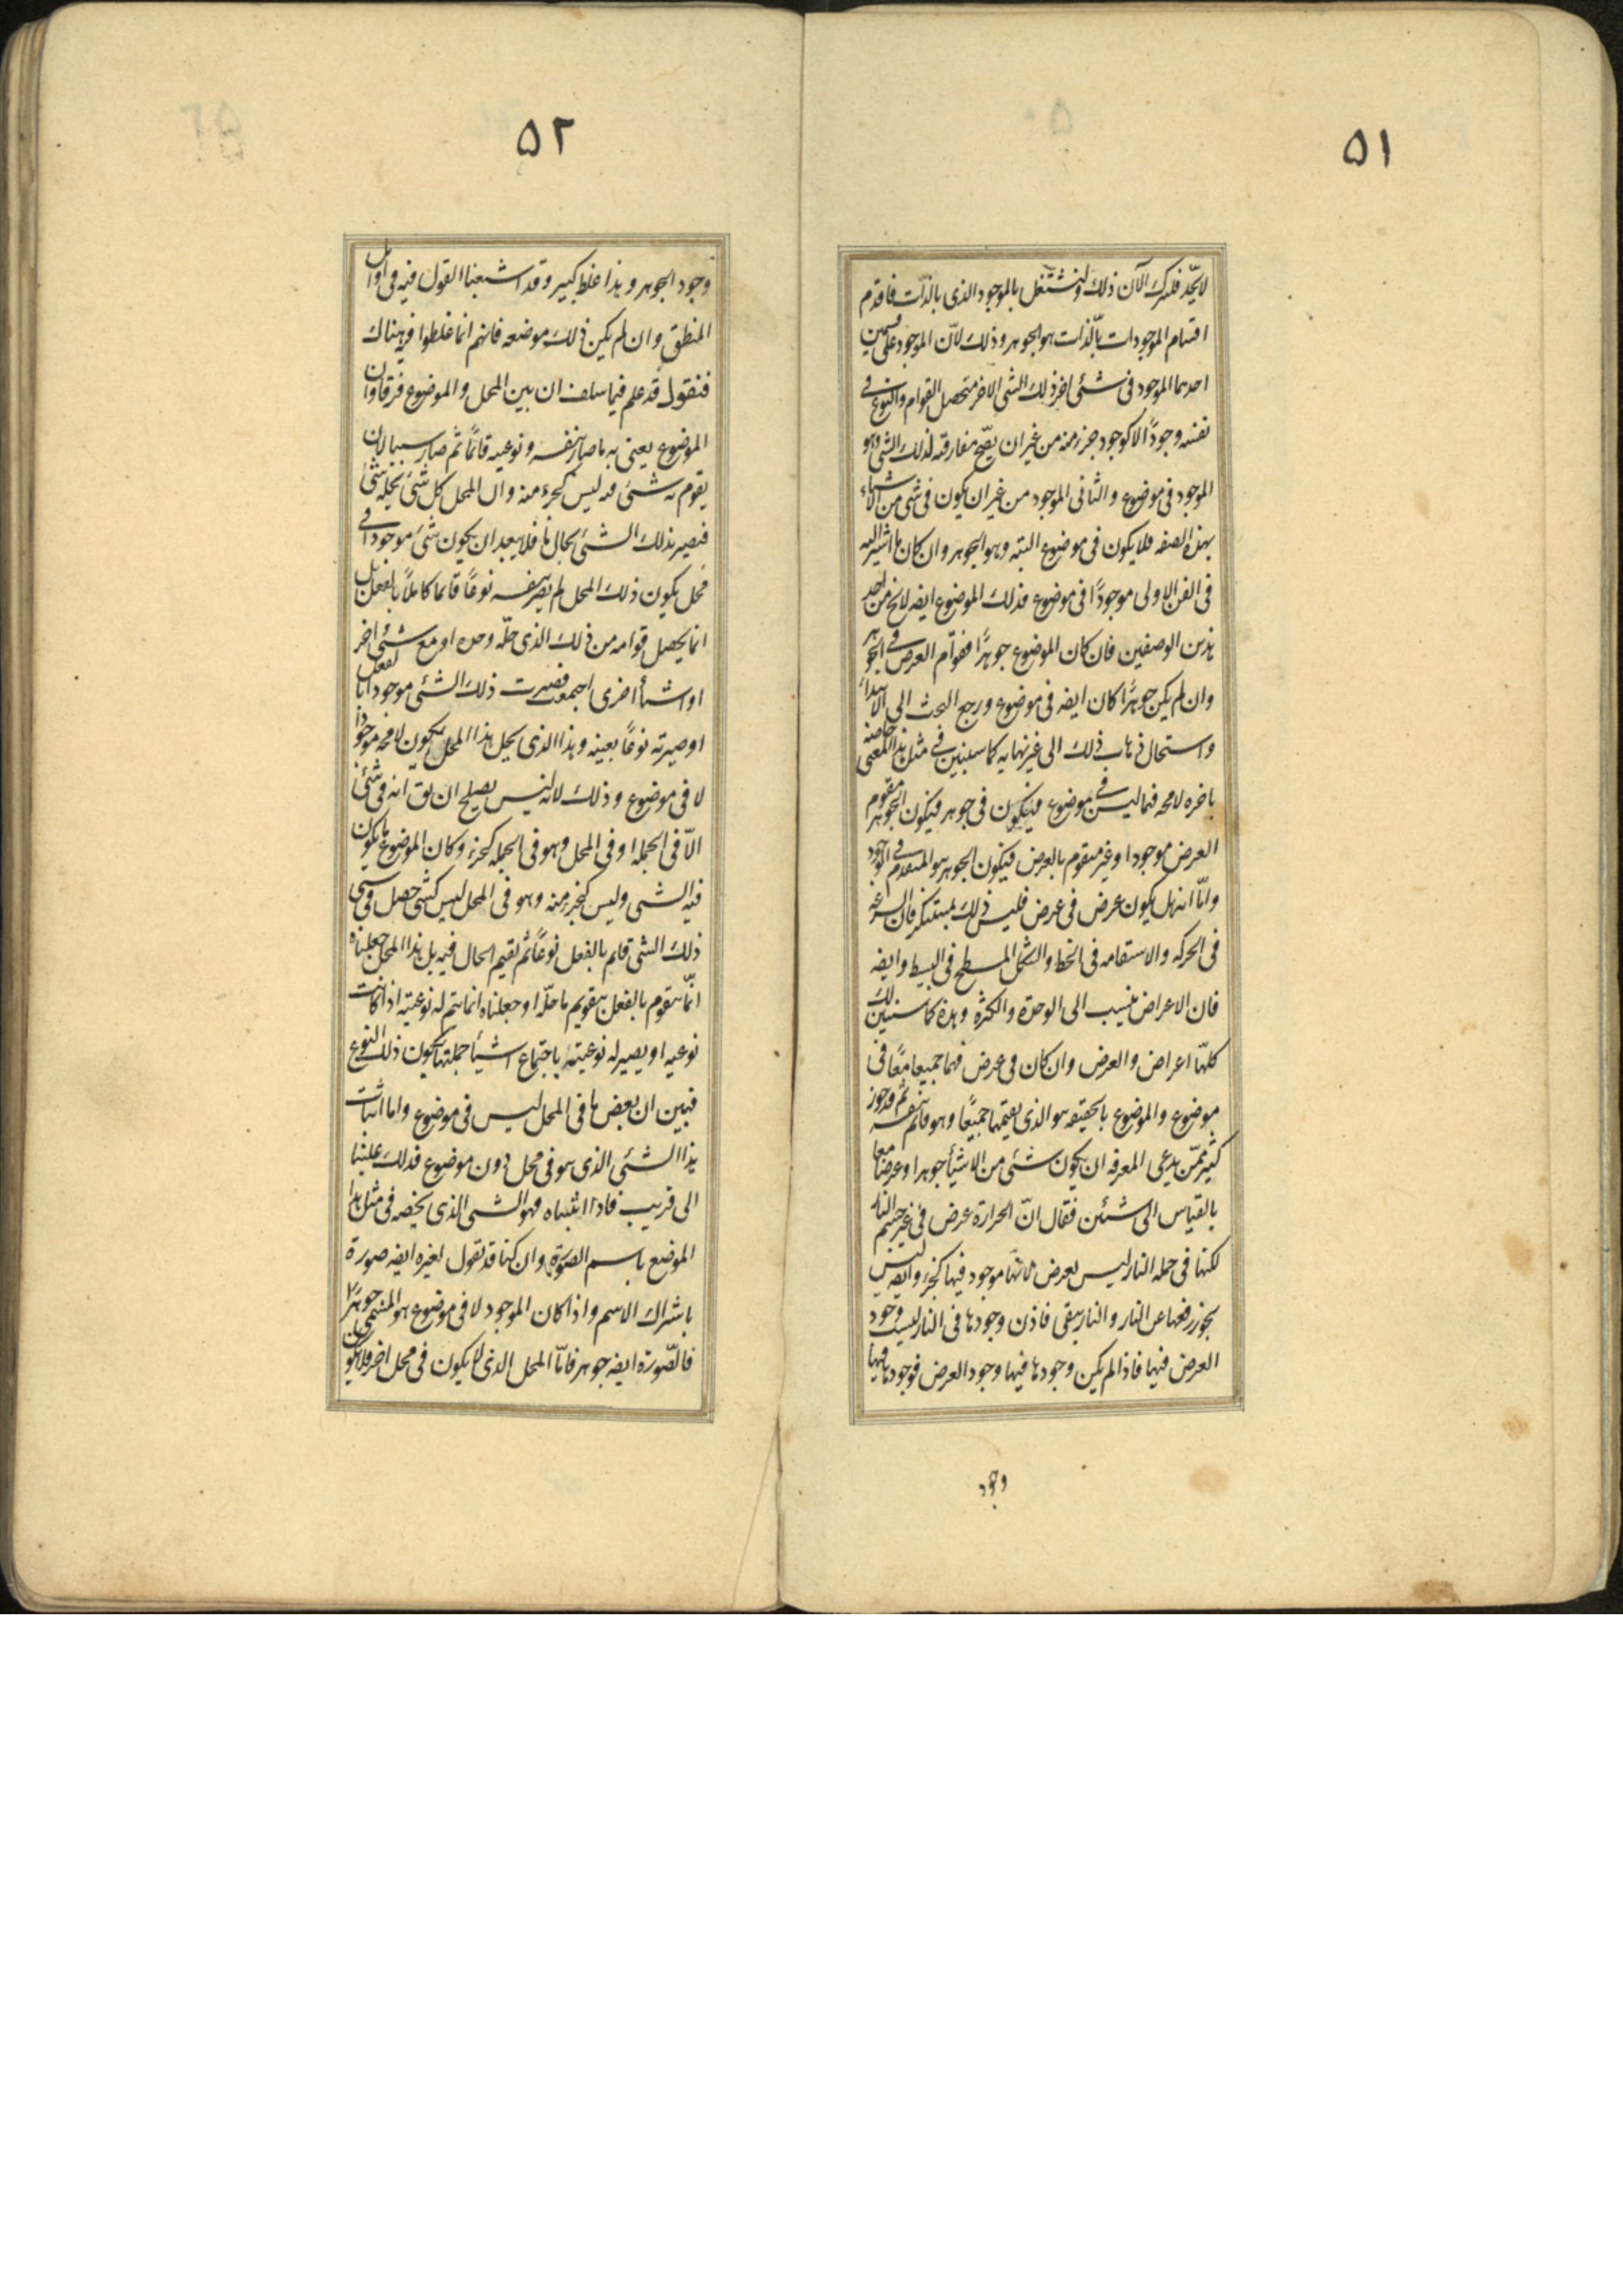 ٥١
لا يحد فلنترك الآن ذلك ولنشتغل بالموجود الذى بالذات فاقدم
اقسام الموجودات بالذات هو الجوهر وذلك لان الموجود على قسمين
احدهما الموجود فى شئ اخر ذلك الشى الاخر متحصل القوام والنوع فى
نفسه وجودًا لا كوجود جزء منه من غير ان يصح مفارقته لذلك الشى وهو
الموجود فى موضوع والثانى الموجود من غير ان يكون فى شى من الاشياء
بهذه الصفه فلا يكون فى موضوع البته وهو الجوهر وان كان ما اشير اليه
فى الفن الاولى موجودًا فى موضوع فذلك الموضوع ايضه لا يخ من احد
هذين الوصفين فان كان الموضوع جوهرًا فقوام العرض فى الجوهر
وان لم يكن جوهرًا كان ايضه فى موضوع ورجع البحث الى الابتداء
واستحال ذهاب ذلك الى غير نهايه كما سنبين فى مثل هذا المعنى خاصة
باخره لا محه فيما ليس فى موضوع فيكون فى جوهر فيكون الجوهر مقوم
العرض موجودا وغير متقوم بالعرض فيكون الجوهر هو المتقدم فى الوجود
واما انه هل يكون عرض فى عرض فليس ذلك بمستنكر فان السرعه
فى الحركه والاستقامه فى الخط والشكل المسطح فى البسيط وايضه
فان الاعراض ينسب الى الوحدة والكثرة وهذه كما سنبين لك
كلها اعراض والعرض وان كان فى عرض فهما جميعا معًا فى
موضوع والموضوع بالحقيقه هو الذى يقيمهما جميعًا وهو قائم بنفسه ثم قد جوز
كثير ممن يدعى المعرفه ان يكون شئ من الاشيأ جوهرا وعرضا معا
بالقياس الى شيئن فقال ان الحرارة عرض فى غير جسم النار
لكنها فى جمله النار ليس بعرض لانها موجود فيها كجزء وايضه ليس
يجوز رفعها عن النار والنار يبقى فاذن وجودها فى النار ليست وجود
العرض فيها فاذا لم يكن وجودها فيها وجود العرض فوجودها فيها
وجود
٥٢
وجود الجوهر وهذا غلط كبير وقد اشبعنا القول فيه فى اوايل
المنطق وان لم يكن ذلك موضعه فانهم انما غلطوا فيه هناك
فنقول قد علم فيما سلف ان بين المحل والموضوع فرقا وان
الموضوع يعنى به ما صار بنفسه ونوعيه قائمًا ثم صار سببا لان
يقوم به شئ فيه ليس كجزء منه وان المحل كل شئ يحله شئ
فيصير بذلك الشئ بحال ما فلا يبعد ان يكون شئ موجودا فى
محل يكون ذلك المحل لم يصر بنفسه نوعًا قائما كاملًا بالفعل بل
انما يحصل قوامه من ذلك الذى حله وحده او مع شئ اخر
او اشيأ اخرى اجتمعت فصيرت ذلك الشئ موجودا بالفعل
او صيرته نوعًا بعينه وهذا الذى يحل هذا المحل يكون لا محه موجودًا
لا فى موضوع وذلك لانه ليس يصلح ان يق انه فى شئ
الا فى الجمله او فى المحل وهو فى الجمله كجزء وكان الموضوع ما يكون
فيه الشى وليس كجزء منه وهو فى المحل ليس كشى حصل فى شى
ذلك الشى قايم بالفعل نوعًا ثم يقيم الحال فيه بل هذا المحل جعلناه
انما يتقوم بالفعل بتقويم ما حله او جعلناه انما يتم له نوعيته اذا كانت
نوعيه او يصير له نوعيته باجتماع اشيأ جملتها يكون ذلك النوع
فبين ان بعض ما فى المحل ليس فى موضوع واما اثبات
هذا الشئ الذى هو فى محل دون موضوع فذلك علينا
الى قريب فاذا اثبتناه فهو الشى الذى يخصه فى مثل هذا
الموضع باسم الصورة وان كنا قد نقول لغيره ايضه صورة
باشراك الاسم واذا كان الموجود لا فى موضوع هو المسمى جوهرًا
فالصورة ايضه جوهر فاما المحل الذى لا يكون فى محل اخر فلا يكون